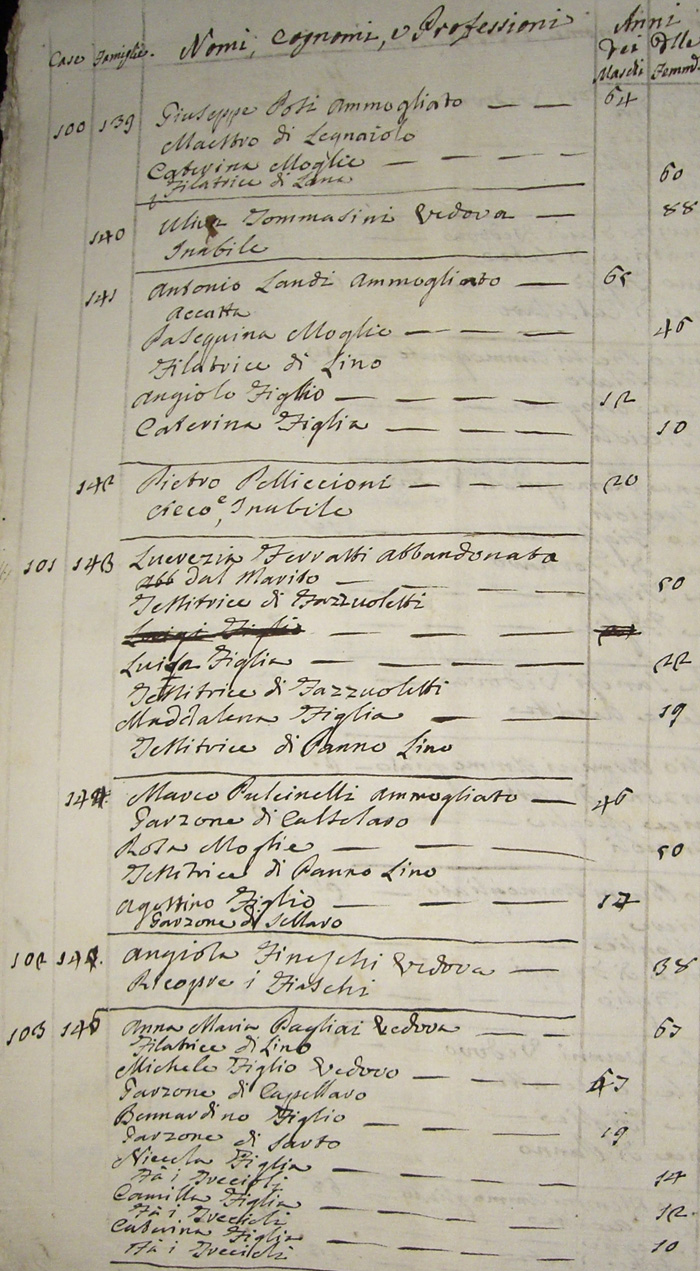 Case Famiglie. Nomi, Cognomi, e Professioni Anni
Dei Delle
Maschi Femmi.
100 139 Giuseppe Posi Ammogliato — — 64
Maestro di Legnaiolo
Caterina Moglie — — — — 60
Filatrice di Lana
140 Tommasini Vedova — 88
Inabile
141 Antonio Landi Ammogliato — 65
Accatta
Pasequina Moglie — — — — 46
Filatrice di Lino
Angiolo Figlio — — — — 12
Caterina Figlia — — — — 10
142 Pietro Pelliccioni — — — 20
Cieco e Inabile
101 143 Lucrezia Ferratti abbandonata
dal Marito — — — — 50
Tessitrice di Fazzuoletti
Luisa Figlia — — — — 22
Tessitrice di Fazzuoletti
Maddalena Figlia — — — 19
Tessitrice di Panno Lino
144 Marco Pulcinelli Ammogliato — 46
Garzone di Caltolaro
Rosa Moglie — — — 50
Tessitrice di Panno Lino
Agostino Figlio — — — 17
Garzone di Sellaro
102 Angiola Fineschi Vedova — 38
Ricopre i Fiaschi
103 Anna Maria Pagliai Vedova — — 67
Filatrice di Lino
Michele Figlio Vedovo — — — 47
Garzone di Capellaro
Bernardino Figlio — — — — 19
Garzone di Sarto
Niccola Figlia — — — — 14
Fà i Treccioli
Camilla Figlia — — — — 12
Fà i Treccioli
Caterina Figlia — — — — 10
Fà i Treccioli